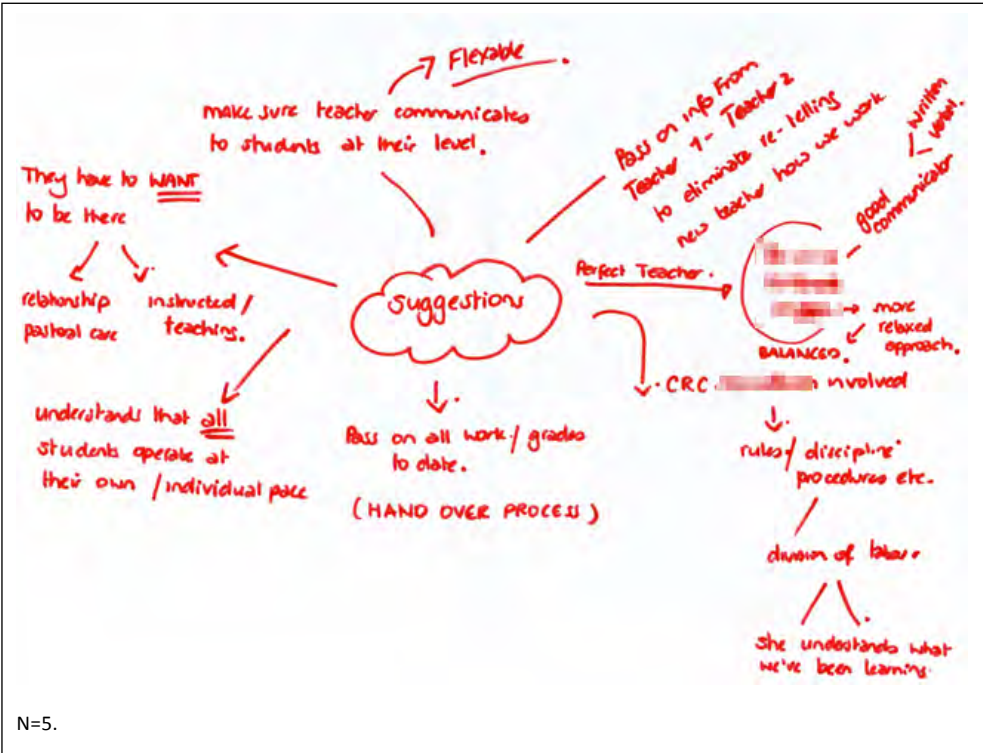 Flexable.
make sure teacher communicates
to students at their level.
They have to WANT
to be there
relationship
pastoral care
instructed/
teaching.
understands that all
students operate at
their own / individual pace
suggestions
Pass on all work / grades
to date.
(HAND OVER PROCESS)
Pass on info From
Teacher 1 - Teacher 2
to eliminate re-telling
new teacher how we work
Perfect Teacher.
good
communicator
written
verbal.
more
relaxed
approach.
BALANCED.
CRC involved
rules / discipline
procedures etc.
division of labour
she understands what
we've been learning.
N=5.